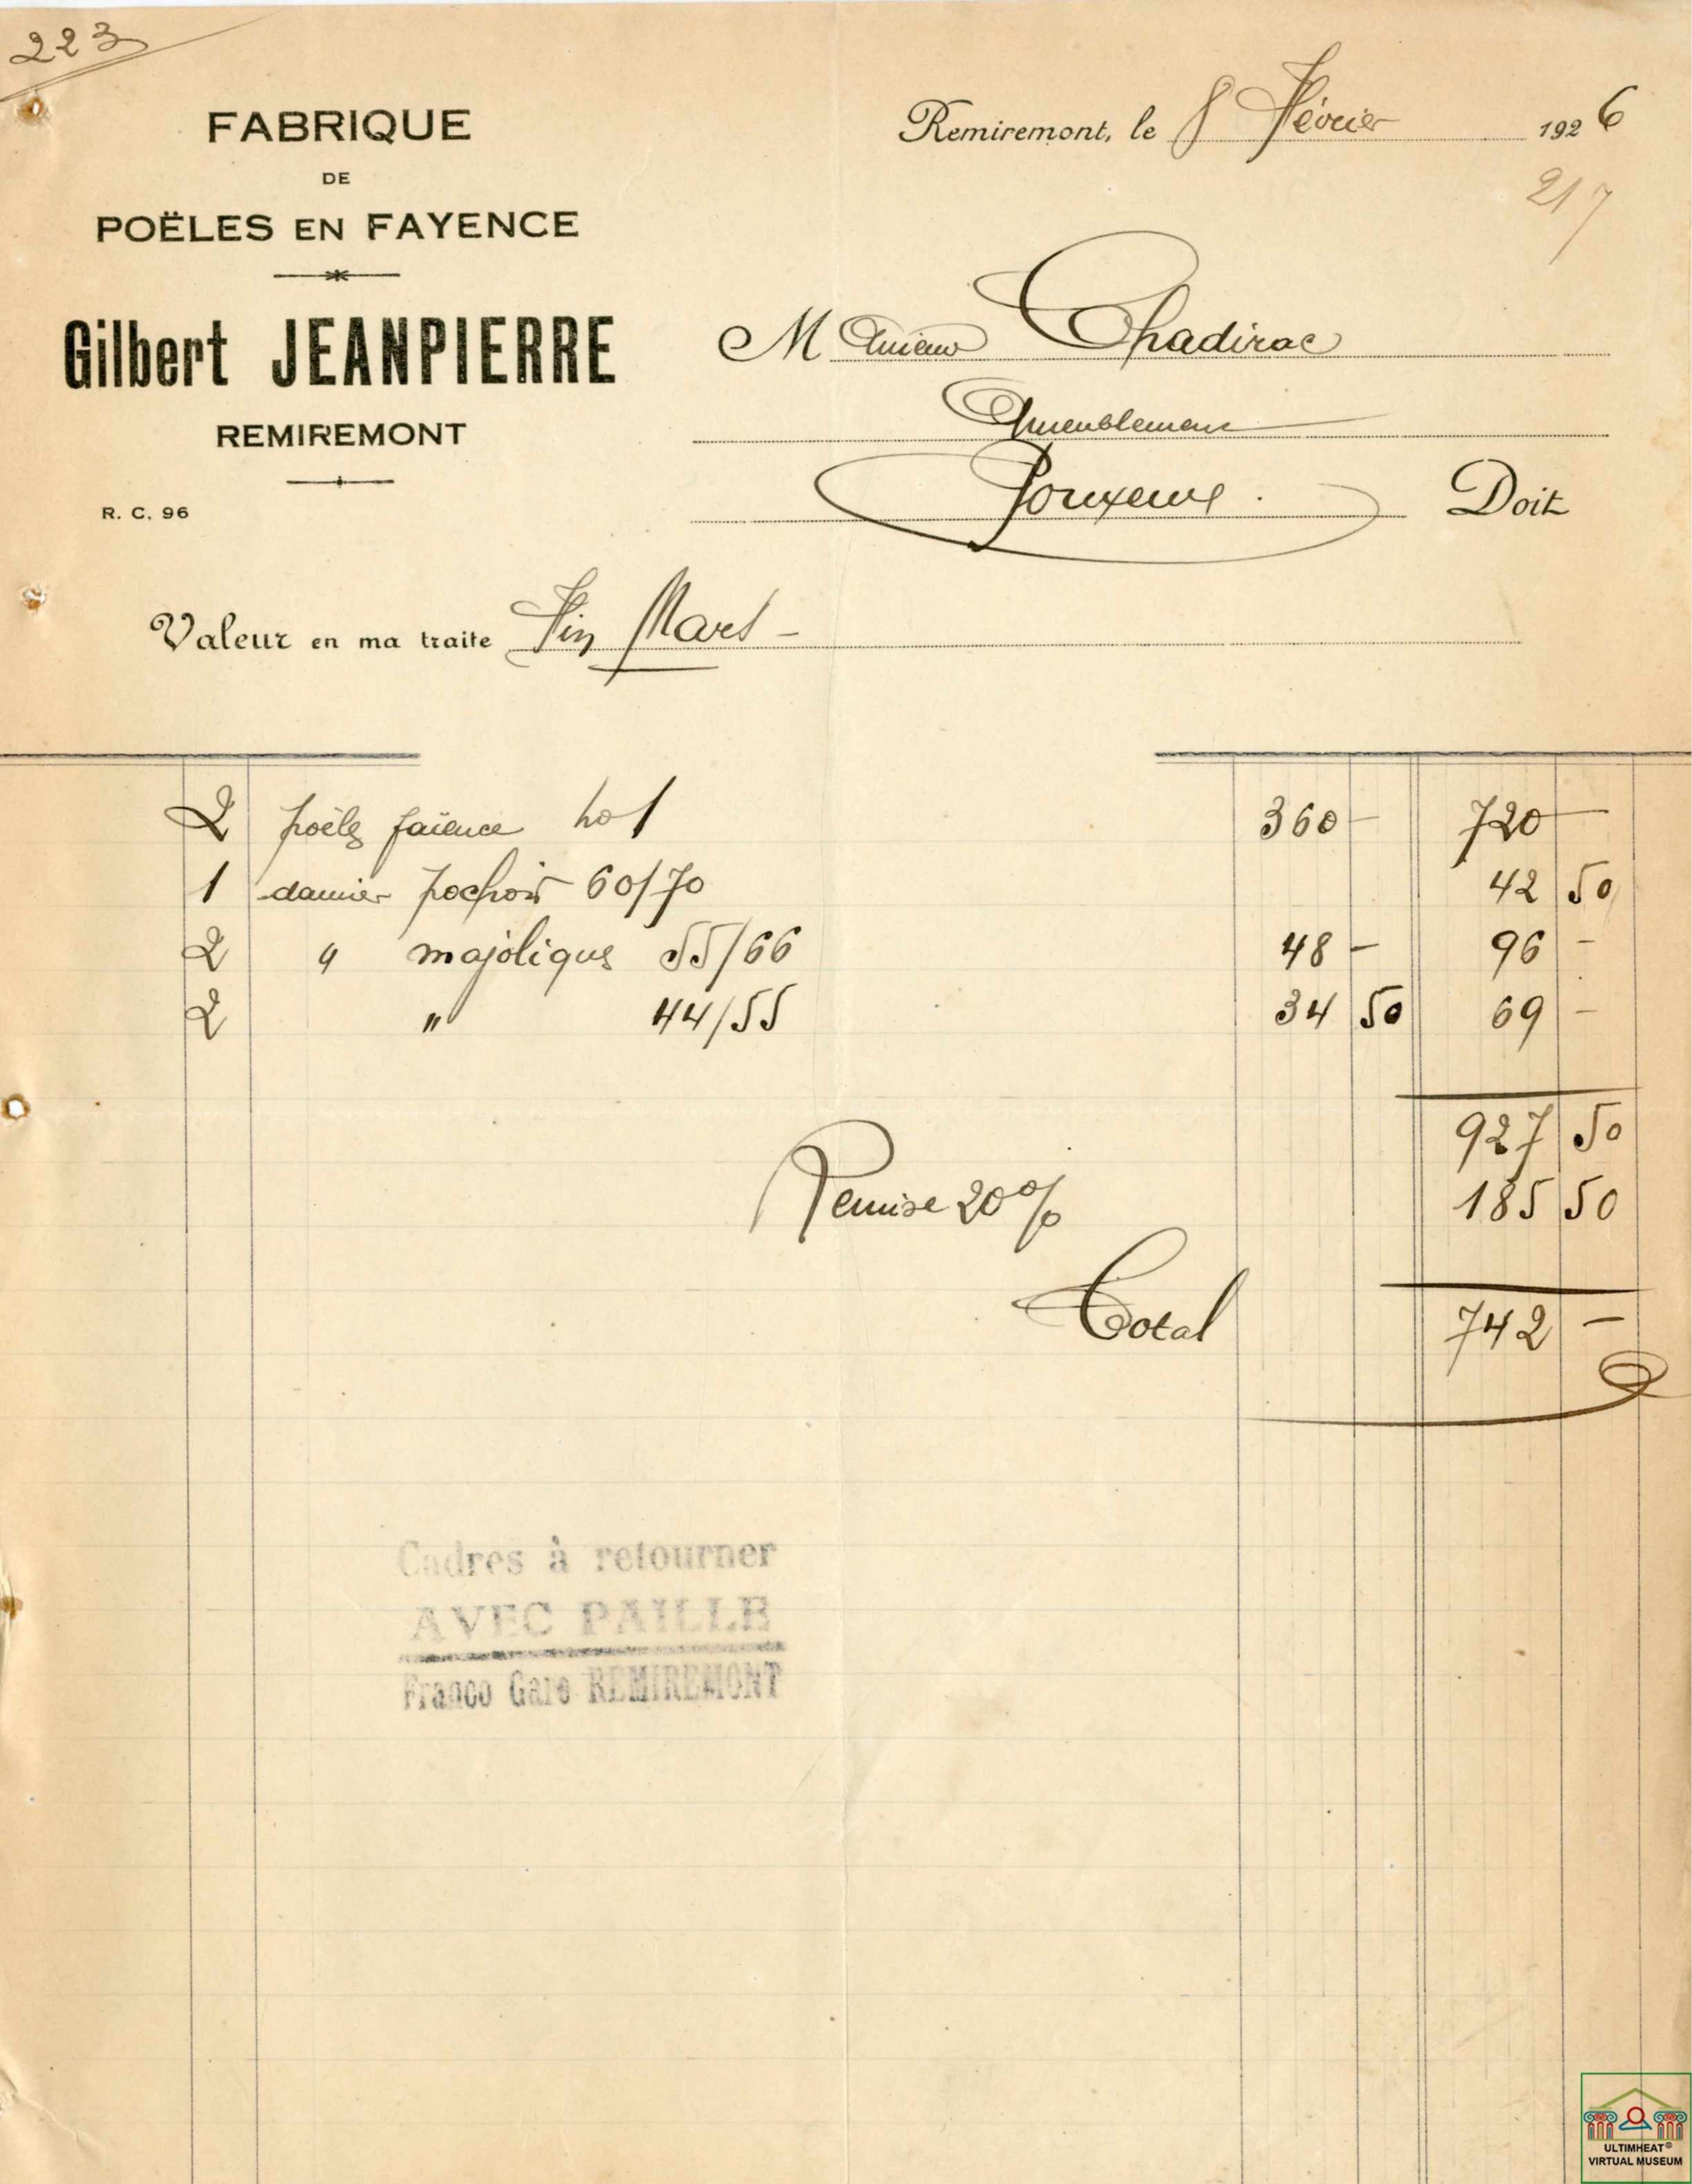 223
FABRIQUE
DE
POËLES EN FAYENCE
Gilbert JEANPIERRE
REMIREMONT
R. C. 96
Remiremont, le 8 Février 1926
217
M Chadirac
Ameublement
Pouxeux. Doit
Valeur en ma traite Fin Mars -
2 poêles faïence no 1 360 - 720 -
1 damier pochoir 60/70 42 50
2 " majoliques 55/66 48 - 96 -
2 " 44/55 34 50 69 -
927 50
Remise 20% 185 50
Total 742 -
Cadres à retourner
AVEC PAILLE
Franco Gare REMIREMONT
ULTIMHEAT®
VIRTUAL MUSEUM